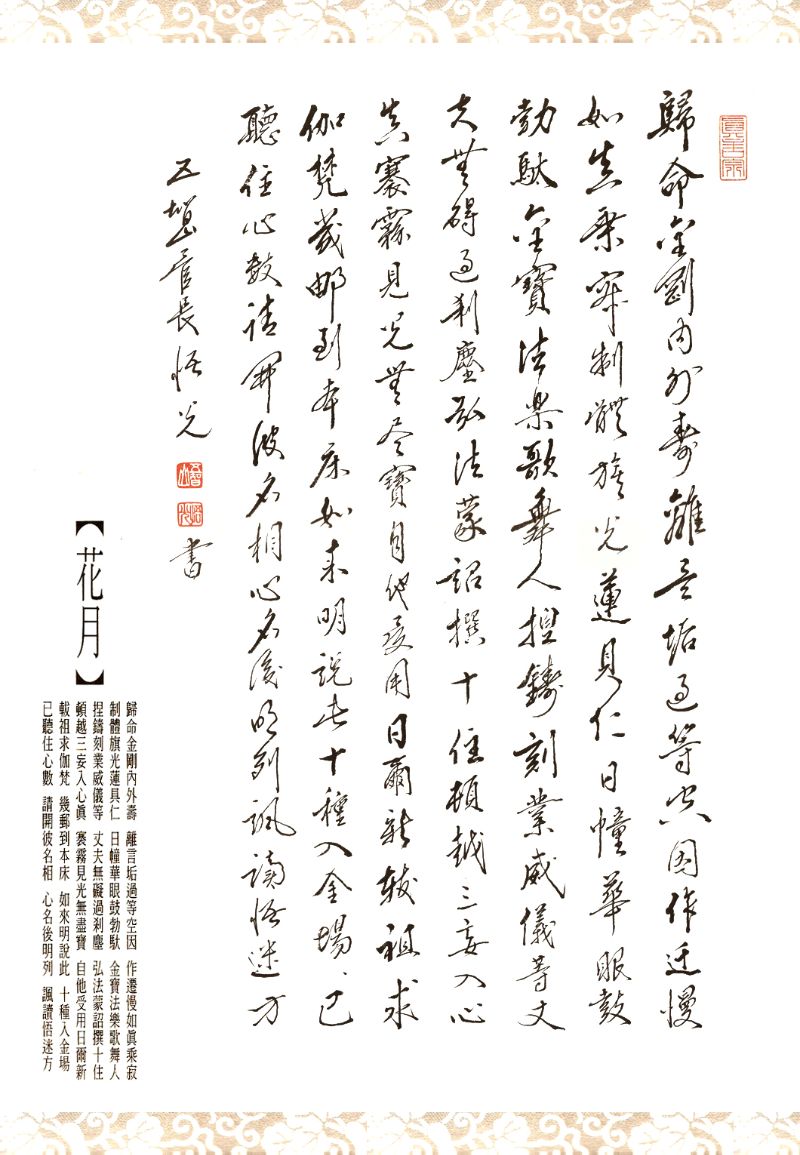 歸命金剛內外壽離言垢過等空因作迁慢
如真乘寂制體旗光蓮具仁日幢華眼鼓
勃馱金寶法樂歌舞人捏鑄刻業威儀等丈
夫無碍過刹塵弘法蒙詔撰十住頓越三妄入心
真褰霧見光無尽寶自他受用日爾新軷祖求
伽梵幾邮到本床如来明說此十種入金場、已
聽住心數請開彼名相心名後明列諷讀悟迷方
五智管長悟光 書
【花月】
歸命金剛內外壽 離言垢過等空因 作遷慢如眞乘寂
制體旗光蓮具仁 日幢華眼鼓勃馱 金寶法樂歌舞人
捏鑄刻業威儀等 丈夫無礙過刹塵 弘法蒙詔撰十住
頓越三妄入心眞 褰霧見光無盡寶 自他受用日爾新
軷祖求伽梵 幾郵到本床 如來明說此 十種入金場
已聽住心數 請開彼名相 心名後明列 諷讀悟迷方